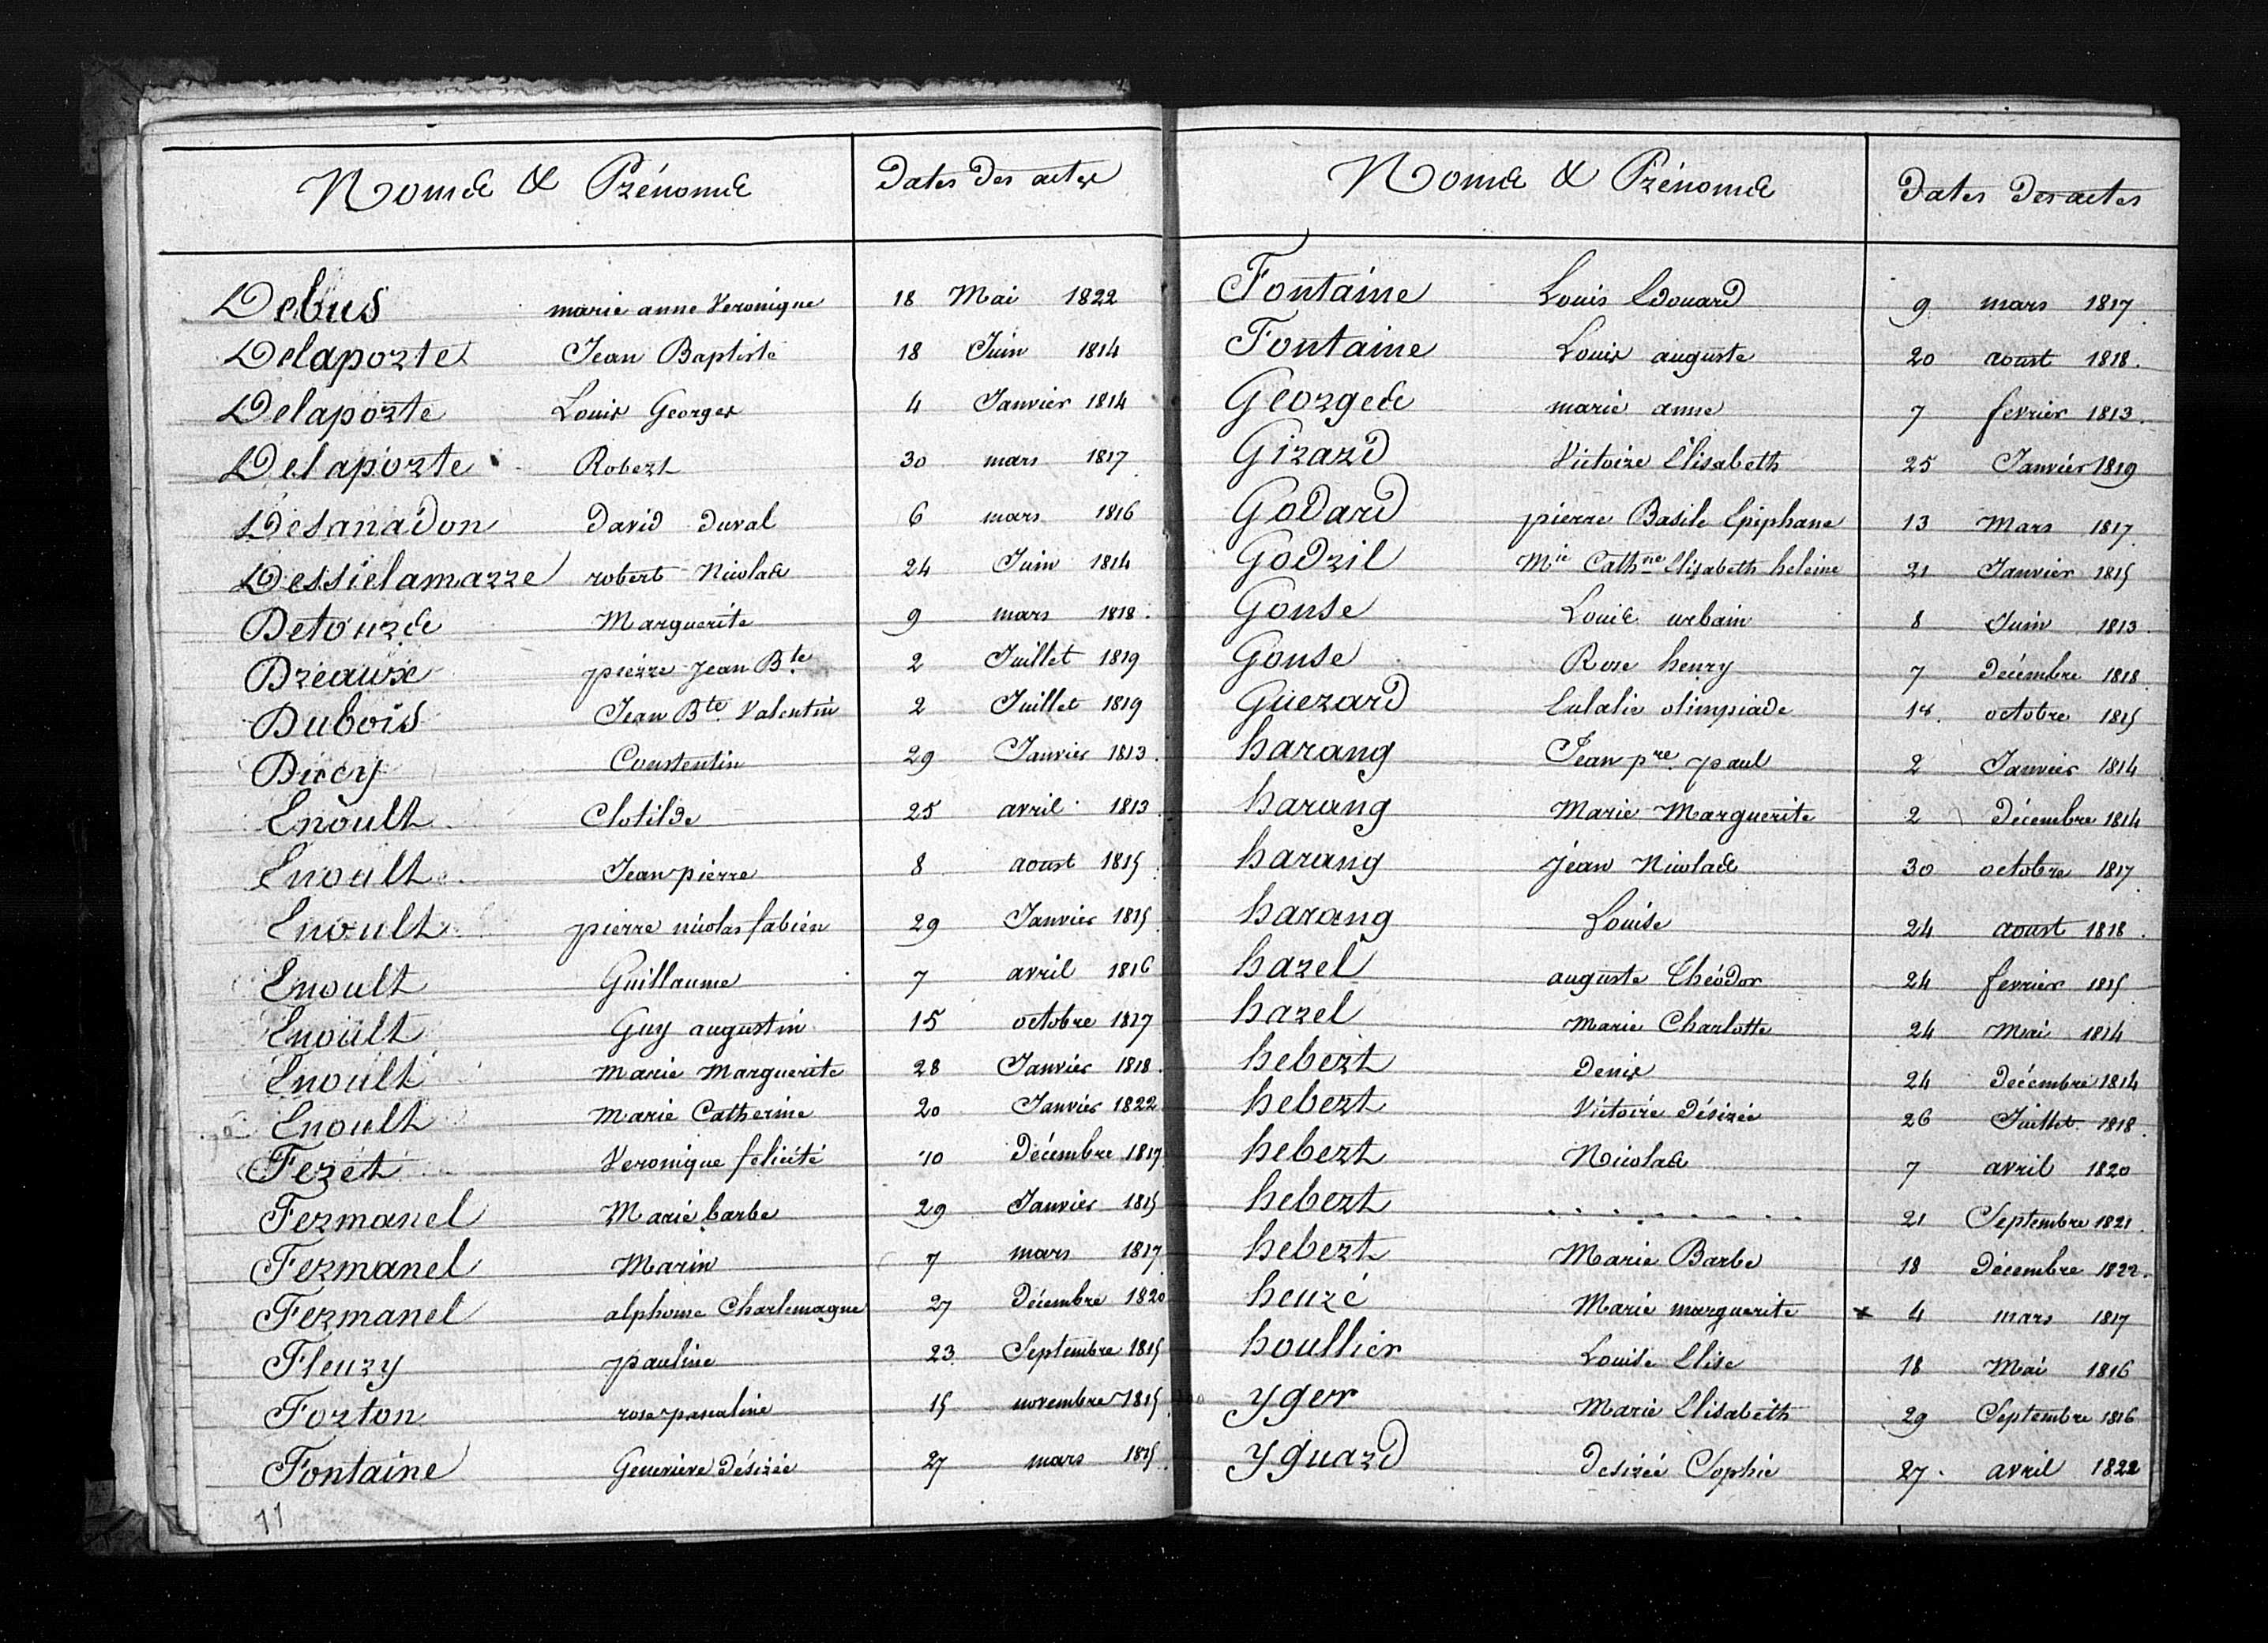 Noms & Prénoms Dates des actes
Debus marie anne Veronique 18 Mai 1822
Delaporte Jean Baptiste 18 Juin 1814
Delaporte Louis Georges 4 Janvier 1814
Delaporte Robert 30 mars 1817
Desanadon David Duval 6 mars 1816
Dessielamarre robert Nicolas 24 Juin 1814
Detours Marguerite 9 mars 1818.
Dreaux pierre Jean Bte 2 Juillet 1819
Dubois Jean Bte Valentin 2 Juillet 1819
Ducy Constentin 29 Janvier 1813.
Enoult Clotilde 25 avril 1813
Enoult Jean pierre 8 aoust 1815
Enoult pierre nicolas fabien 29 Janvier 1815
Enoult Guillaume 7 avril 1816
Enoult Guy augustin 15 octobre 1817
Enoult Marie Marguerite 28 Janvier 1818.
Enoult Marie Catherine 20 Janvier 1822
Feret Veronique felicité 10 Décembre 1817
Fermanel Marie barbe 29 Janvier 1815
Fermanel Marin 7 mars 1817
Fermanel alphonse Charlemagne 27 Décembre 1820
Fleury pauline 23 Septembre 1815
Forton rose pascaline 15 novembre 1815
Fontaine Genevieve Désirée 27 mars 1815
11
Noms & Prénoms Dates des actes
Fontaine Louis Edouard 9 mars 1817
Fontaine Louis auguste 20 aoust 1818.
Georges marie anne 7 fevrier 1813.
Girard Victoire Elisabeth 25 Janvier 1819
Godard pierre Basile Epiphane 13 Mars 1817
Godril Mie Cathne Elisabeth heleine 21 Janvier 1815
Gonse Louis urbain 8 Juin 1813.
Gonse Rose henry 7 Décembre 1818
Guerard Eulalie olimpiade 14 octobre 1815
harang Jean pre paul 2 Janvier 1814
harang Marie Marguerite 2 Décembre 1814
harang jean Nicolas 30 octobre 1817
harang Louise 24 aoust 1818.
harel auguste Théodor 24 fevrier 1815
harel Marie Charlotte 24 Mai 1814
hebert Denis 24 Décembre 1814
hebert Victoire Désirée 26 Juillet 1818.
hebert Nicolas 7 avril 1820
hebert . . . . . . . . . 21 Septembre 1821.
hebert Marie Barbe 18 Décembre 1822.
heuzé Marie marguerite x 4 mars 1817
houllier Louise Elise 18 Mai 1816
yger Marie Elisabeth 29 Septembre 1816
yguard Desirée Sophie 27. avril 1822